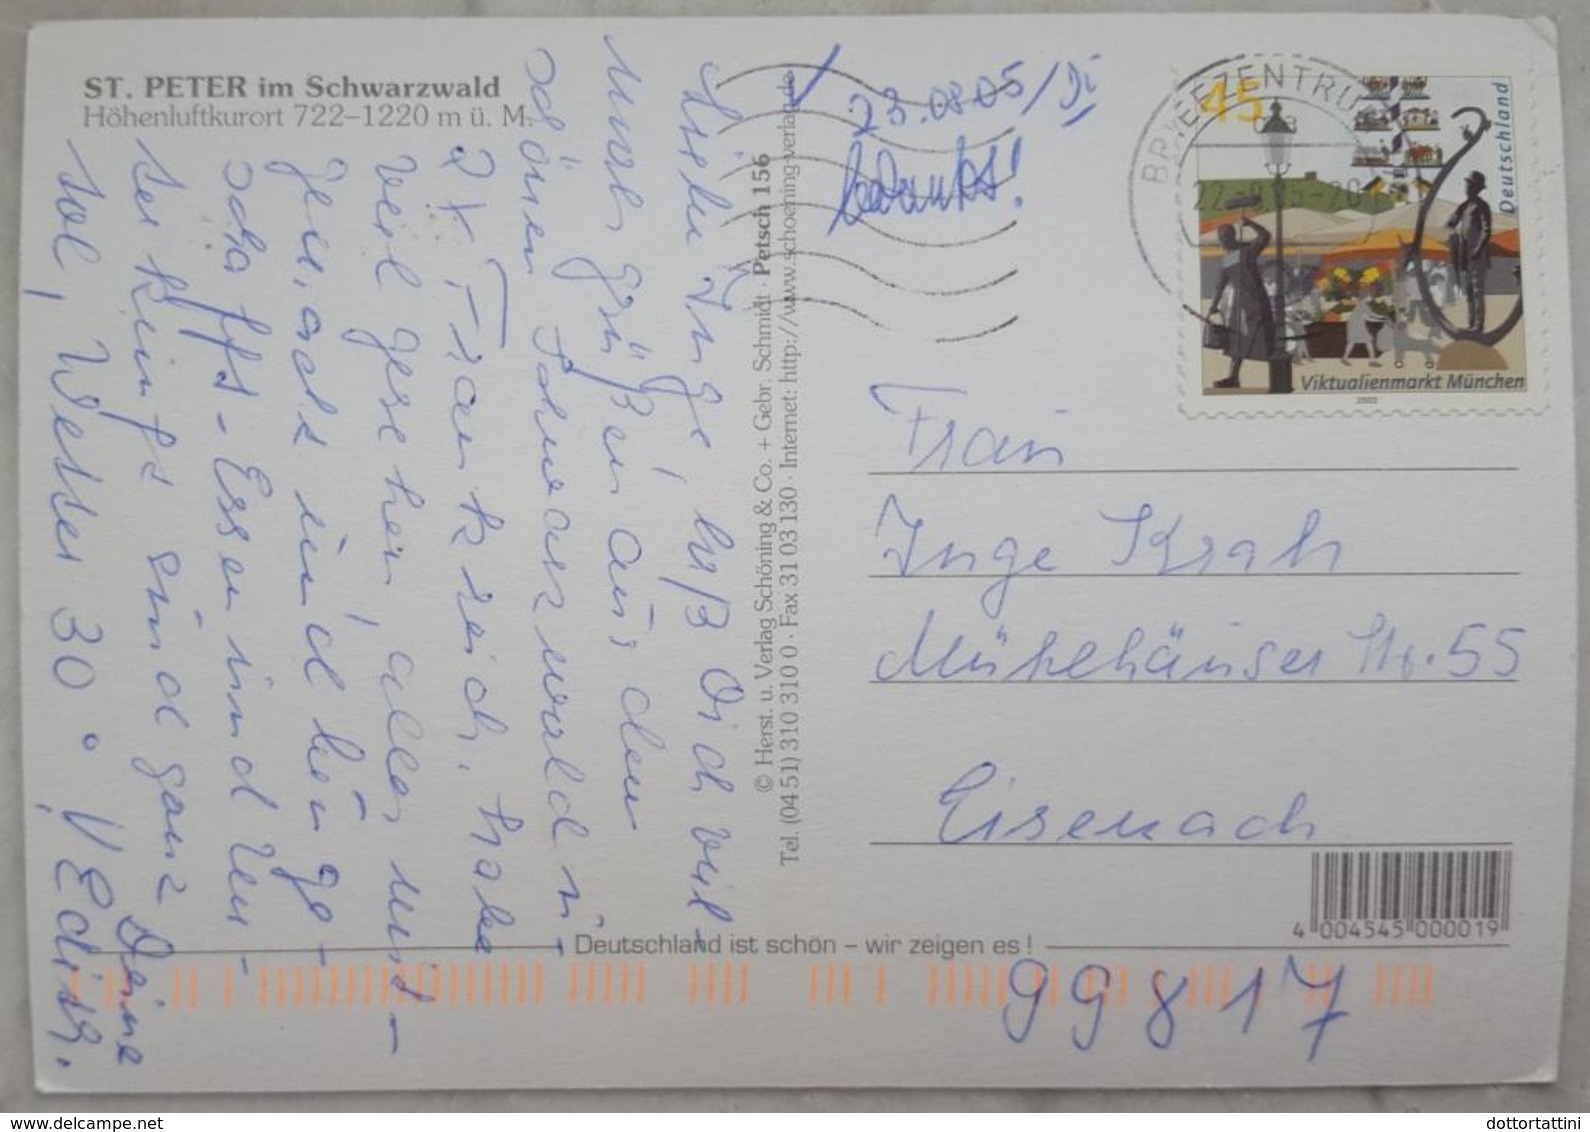 ST. PETER im Schwarzwald
Höhenluftkurort 722–1220 m ü. M.
Liebe Inge, laß Dich viel-
mals grüßen aus den
schönen Schwarzwald n-
2 x Frankreich. habe
viel gesehen, alles mit-
gemacht und hin ge-
schafft - Essen und Un-
terkunft sind ganz
tol, Wetter 30° !
Deine
Edith.
© Herst. u. Verlag Schöning & Co. + Gebr. Schmidt · Petsch 156
Tel. (04 51) 310 310 0 · Fax 31 03 130 · Internet: http://www.schoening-verlag.de
23.08.05/Di
bedankt!
BRIEFZENTRUM
22.-8.05-20
45
Deutschland
Viktualienmarkt München
2003
Frau
Inge Krah
Mühlhäuser Str. 55
Eisenach
4 004545 000019
Deutschland ist schön – wir zeigen es !
99817
dottortattini